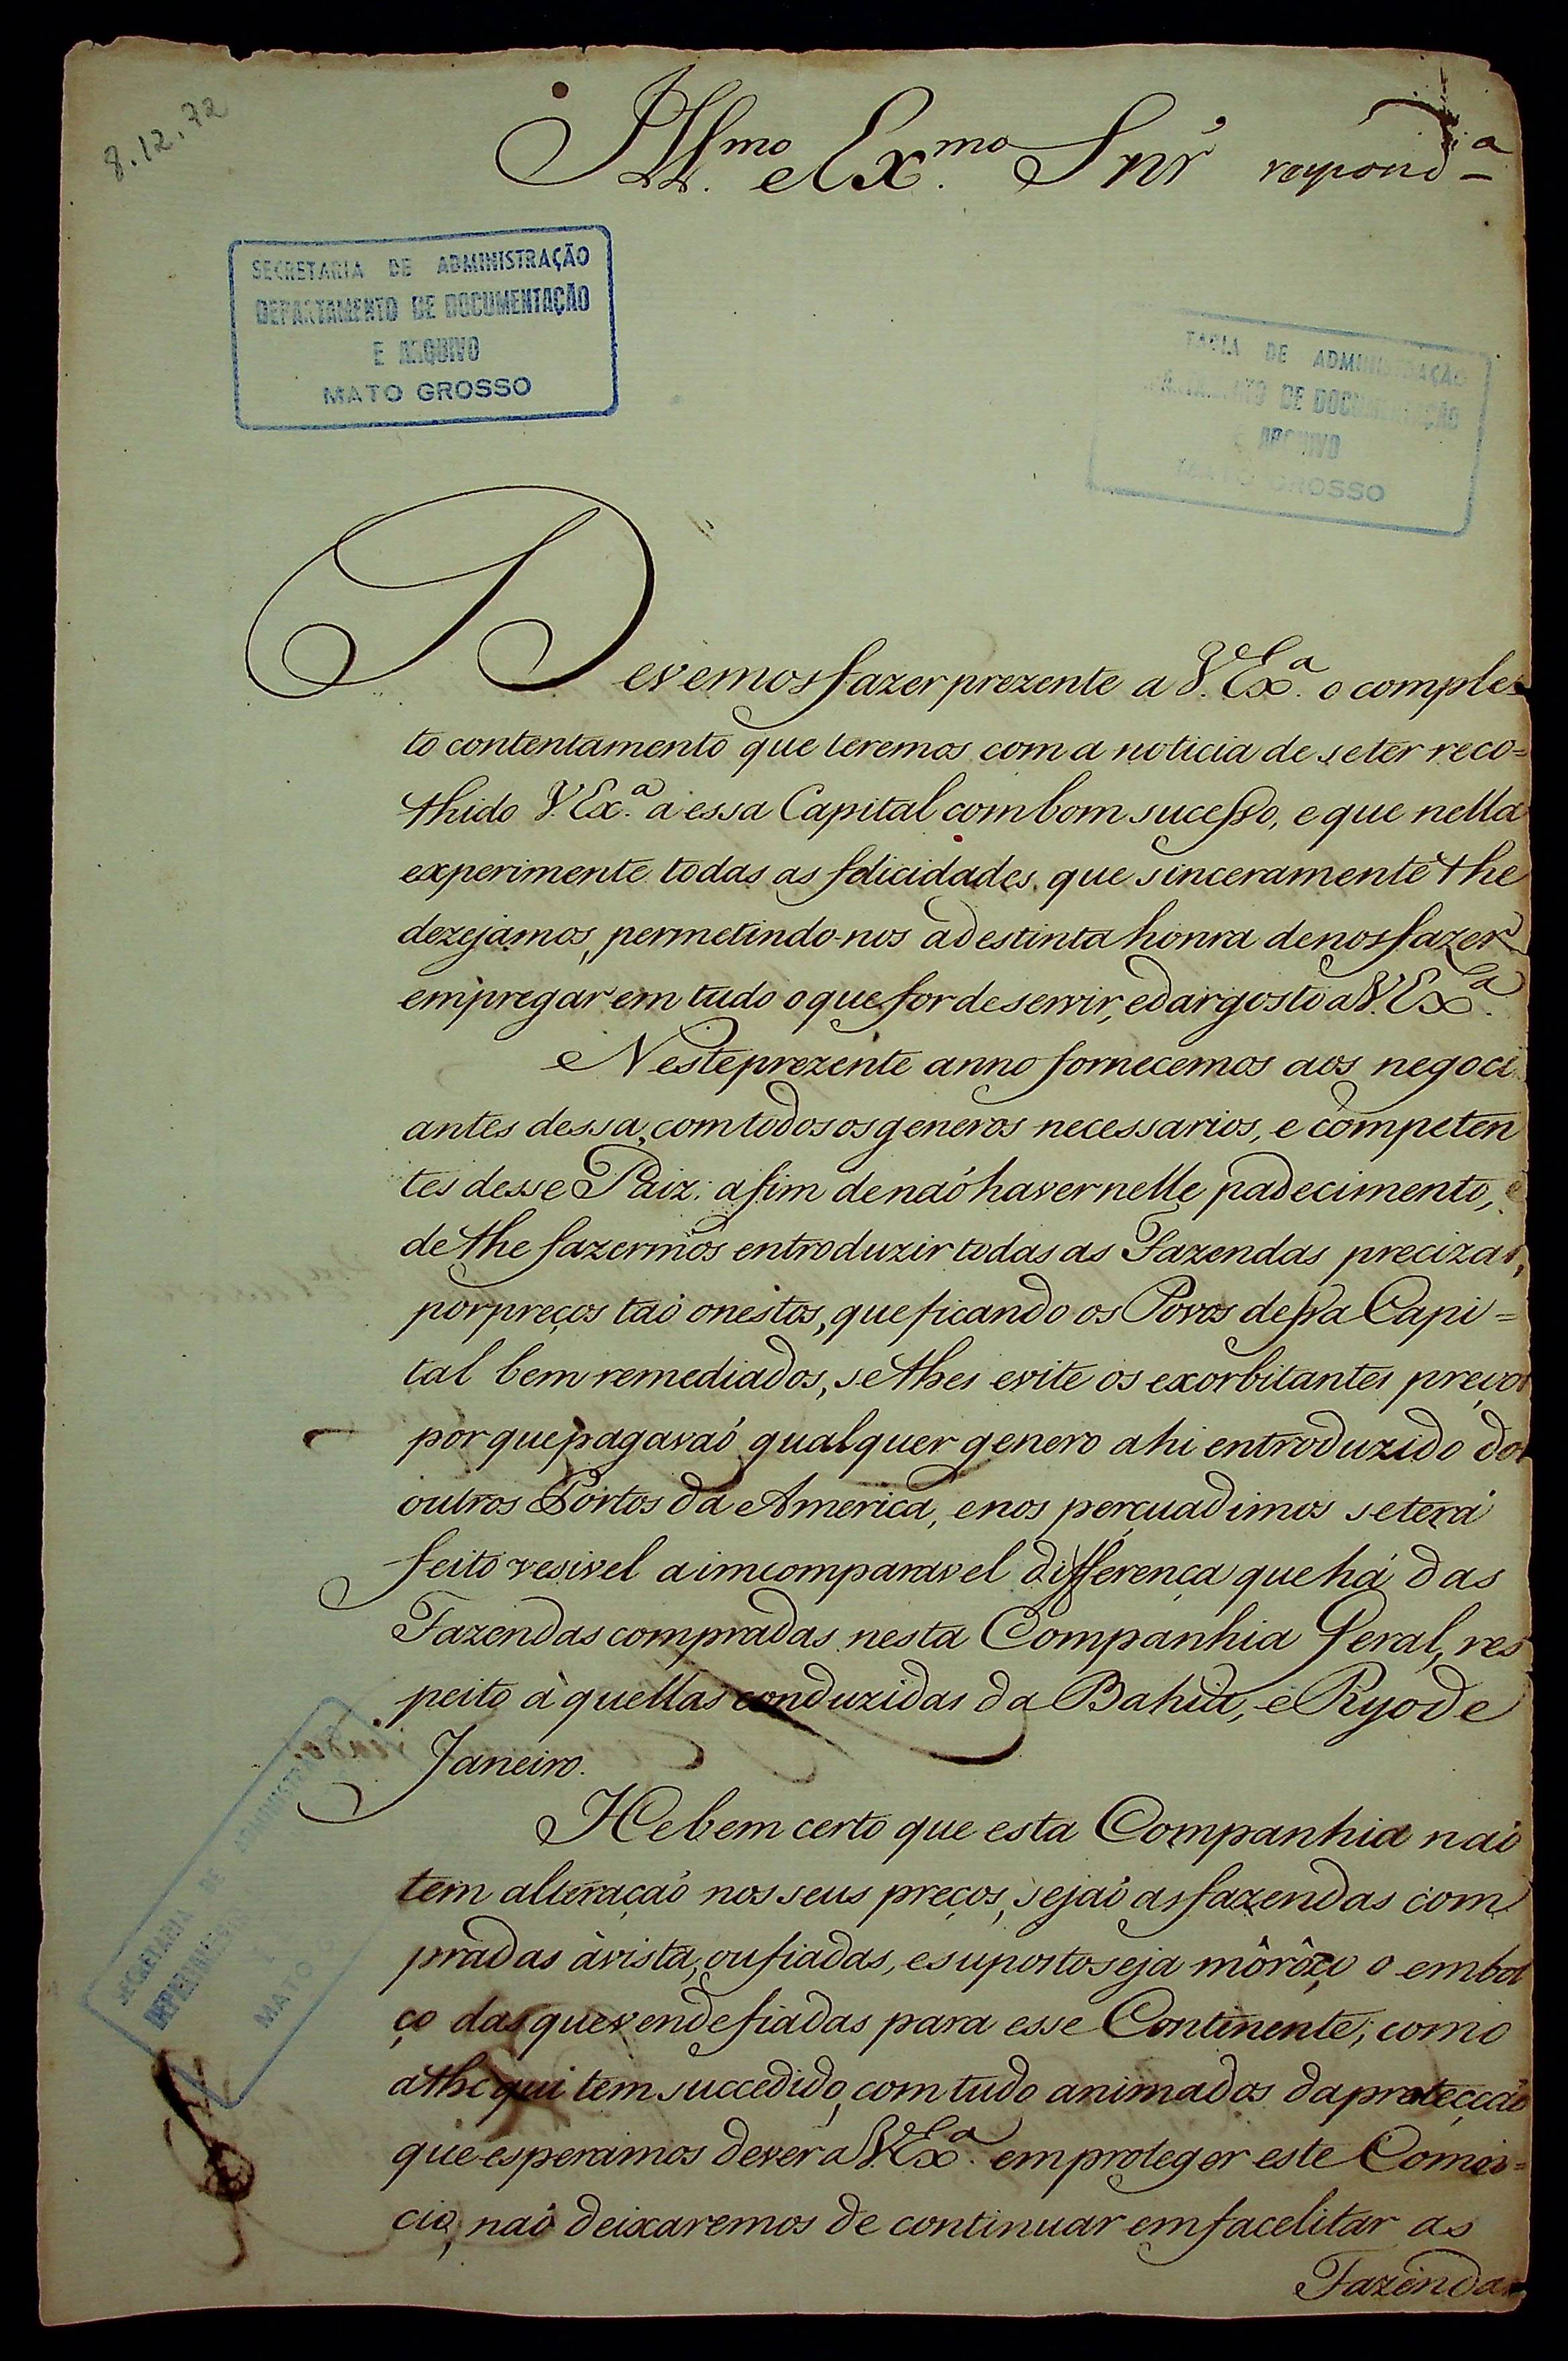 8.12.72
Ill.mo e Ex.mo Snr' respond.a
SECRETARIA DE ADMINISTRAÇÃO
DEPARTAMENTO DE DOCUMENTAÇÃO
E ARQUIVO
MATO GROSSO
TARIA DE ADMINISTRAÇÃO
DE DOCUMENTAÇÃO
E ARQUIVO
MATO GROSSO
Devemos fazer prezente a V. Ex.a o comple=
to contentamento que teremos com a noticia de se ter reco=
lhido V. Ex.a a essa Capital com bom sucesso, e que nella
experimente todas as felicidades, que sinceramente lhe
dezejamos, permetindo-nos a destinta honra de nos fazer
empregar em tudo o que for de servir, e dar gosto a V. Ex.a
Neste prezente anno fornecemos aos negoci
antes dessa, com todos os generos necessarios, e competen
tes desse Paiz: afim de naó haver nelle padecimento, e
de lhe fazermos entroduzir todas as Fazendas precizas,
por preços taó onestos, que ficando os Povos dessa Capi=
tal bem remediados, se lhes evite os exorbitantes preços
por que pagavaó qualquer genero ahi entroduzido dos
outros Portos da America, e nos perçuadimos se terá
feito vesivel a imcomparavel differença que há das
Fazendas compradas nesta Companhia Geral, res
peito à quellas conduzidas da Bahia, e Ryo de
Janeiro.
He bem certo que esta Companhia naó
tem alteraçaó nos seus preços, sejaó as fazendas com
pradas àvista, ou fiadas, e suposto seja môrôzo o embol
ço das que vende fiadas para esse Continente, como
athe qui tem succedido, com tudo animados da protecçaó
que esperamos dever a V. Ex.a em proteger este Comer=
cio, naó deixaremos de continuar em facelitar as
Fazendas
SECRETARIA DE ADMINISTRAÇÃO
DEPARTAMENTO
E
MATO